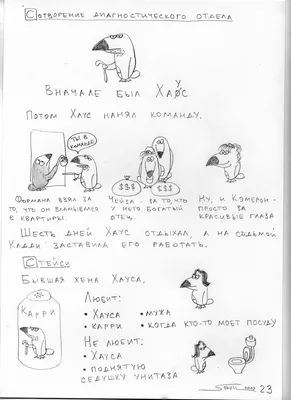 СОТВОРЕНИЕ ДИАГНОСТИЧЕСКОГО ОТДЕЛА
ВНАЧАЛЕ БЫЛ ХАУС
ПОТОМ ХАУС НАНЯЛ КОМАНДУ.
ТЫ В
КОМАНДЕ
$$$ $$$
ФОРМАНА ВЗЯЛ ЗА
ТО, ЧТО ОН ВЛАМЫВАЛСЯ
В КВАРТИРЫ.
ЧЕЙЗА - ЗА ТО, ЧТО
У НЕГО БОГАТЫЙ
ОТЕЦ.
НУ, И КЭМЕРОН -
ПРОСТО ЗА
КРАСИВЫЕ ГЛАЗА
ШЕСТЬ ДНЕЙ ХАУС ОТДЫХАЛ, А НА СЕДЬМОЙ
КАДДИ ЗАСТАВИЛА ЕГО РАБОТАТЬ.
СТЕЙСИ
БЫВШАЯ ЖЕНА ХАУСА.
КАРРИ
ЛЮБИТ:
• ХАУСА • МУЖА
• КАРРИ • КОГДА КТО-ТО МОЕТ ПОСУДУ
НЕ ЛЮБИТ:
• ХАУСА
• ПОДНЯТУЮ
СЕДУШКУ УНИТАЗА
23